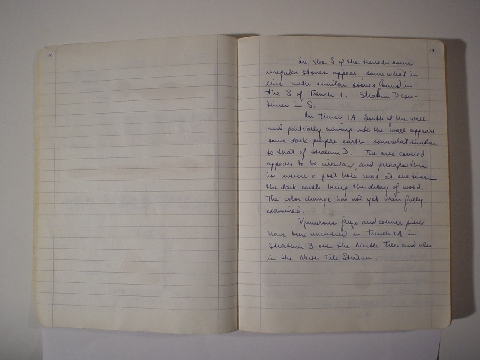 of the trench some
irregular stones appear somewhat in
line with similar stones found in
of Trench 1. Stratum D con-
tinues
In Trench 1A south of the wall
and partially running into the wall appears
some dark purple earth somewhat similar
to that of stratum D. The area covered
appears to be circular, and perhaps this
is where a post hole was at one time
the dark earth being the decay of wood.
The color change has not yet been fully
examined.
Numerous and
have been uncovered in Trench 1A in
Stratum 3 over the Tiles and also
in the Tile Stratum.